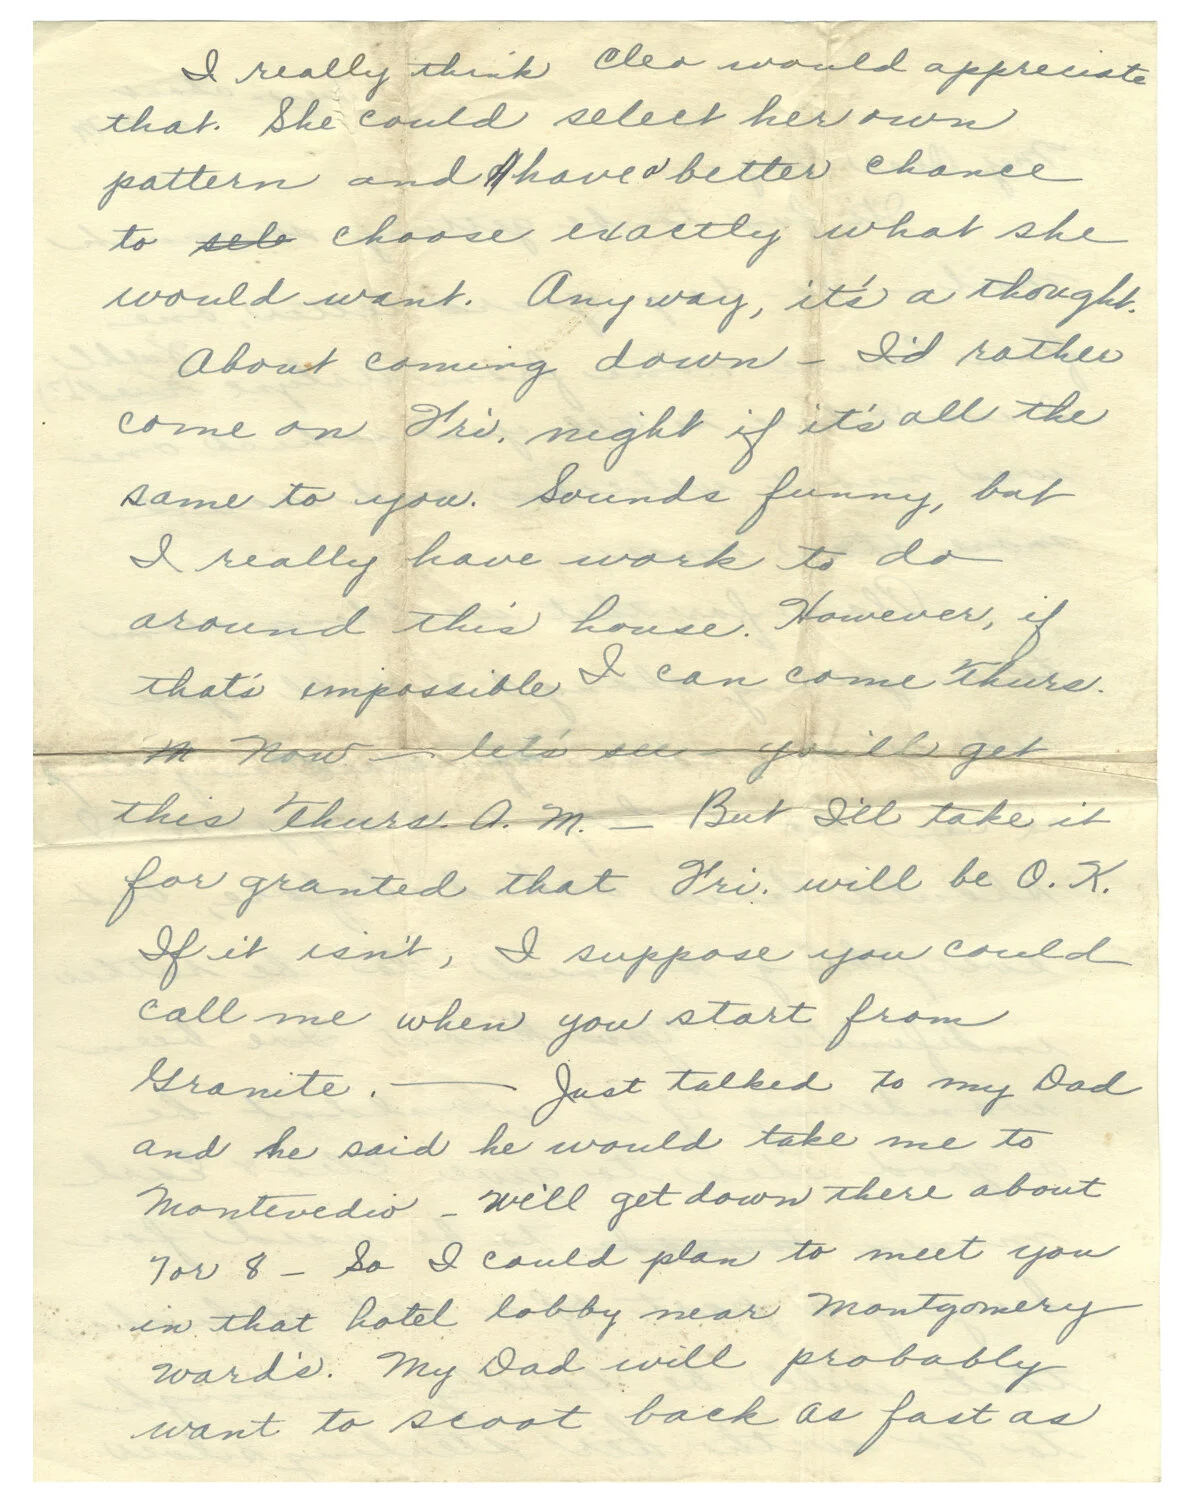 I really think Cleo would appreciate
that. She could select her own
pattern and have a better chance
to sele choose exactly what she
would want. Anyway, it's a thought.
About coming down – I'd rather
come on Fri. night if it's all the
same to you. Sounds funny, but
I really have work to do
around this house. However, if
that's impossible I can come Thurs.
M Now — let's see – you'll get
this Thurs. A.M. — But I'll take it
for granted that Fri. will be O.K.
If it isn't, I suppose you could
call me when you start from
Granite. —— Just talked to my Dad
and he said he would take me to
Montevedio – We'll get down there about
7 or 8 – So I could plan to meet you
in that hotel lobby near Montgomery
Ward's. My Dad will probably
want to scoot back as fast as